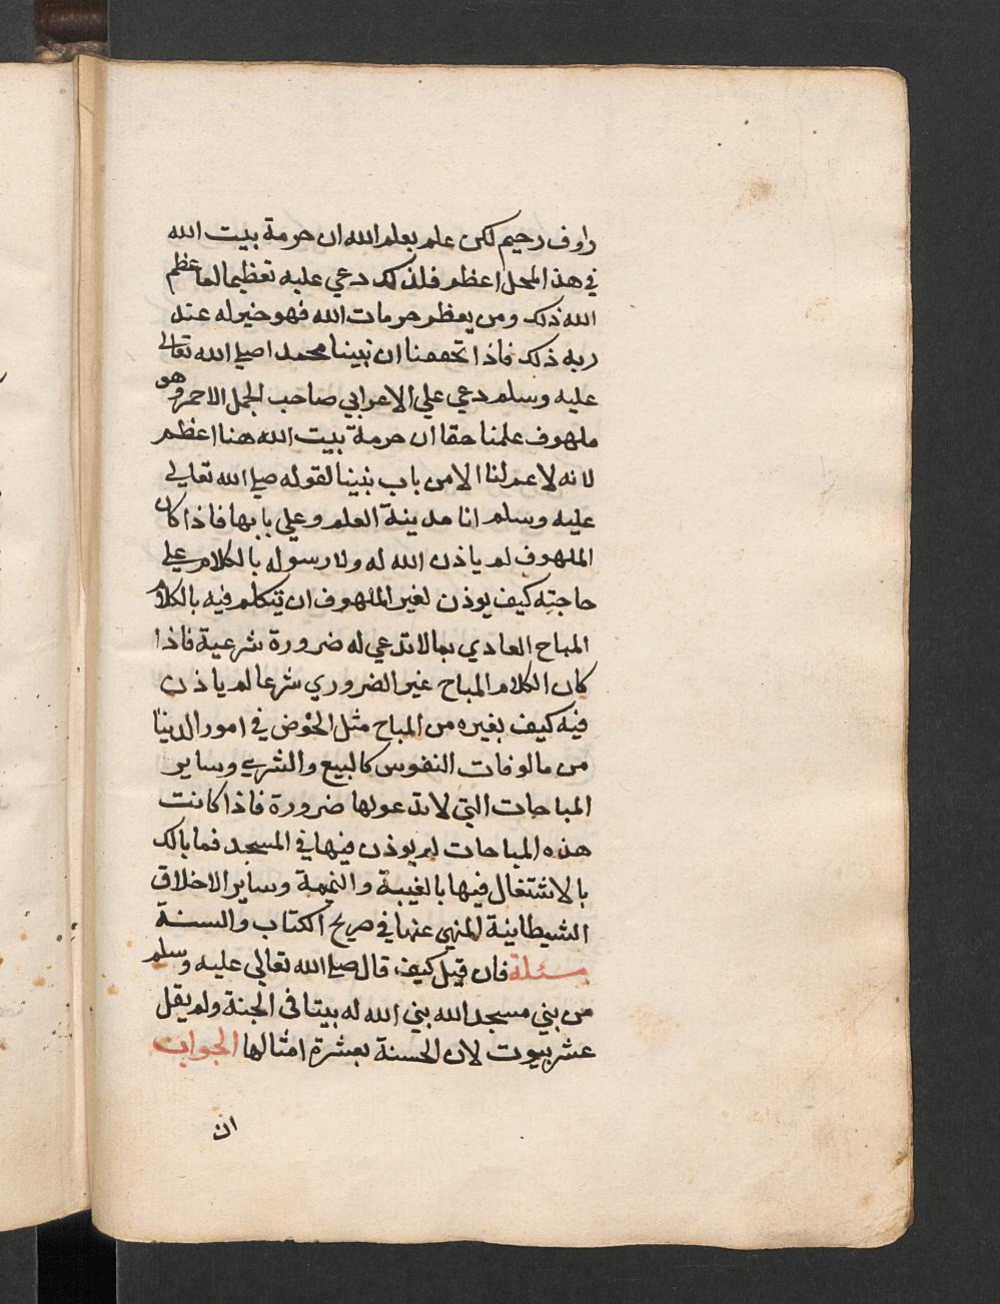 راوف رحيم لكن علم بعلم الله ان حرمة بيت الله
في هذا المحل اعظم فلذلك دعي عليه تعظيما لما عظم
الله ذلك ومن يعظم حرمات الله فهو خير له عند
ربه ذلك فاذا تحققنا ان نبينا محمدا صلي الله تعالي
عليه وسلم دعي علي الاعرابي صاحب الجمل الاحمر وهو
ملهوف علمنا حقا ان حرمة بيت الله هنا اعظم
لانه لا علم لنا الا من باب نبينا لقوله صلي الله تعالي
عليه وسلم انا مدينة العلم وعلي بابها فاذا كان
الملهوف لم ياذن الله له ولا رسوله بالكلام علي
حاجته كيف يوذن لغير الملهوف ان يتكلم فيه بالكلام
المباح العادي بما لا تدعي له ضرورة شرعية فاذا
كان الكلام المباح غير الضروري شرعا لم ياذن
فيه كيف بغيره من المباح مثل الخوض في امور الدنيا
من مالوفات النفوس كالبيع والشري وساير
المباحات التي لا تدعو لها ضرورة فاذا كانت
هذه المباحات لم يوذن فيها في المسجد فما بالك
بالاشتغال فيها بالغيبة والنميمة وساير الاخلاق
الشيطانية المنهي عنها في صريح الكتاب والسنة
مسئلة فان قيل كيف قال صلي الله تعالي عليه وسلم
من بني مسجد الله بني الله له بيتا في الجنة ولم يقل
عشر بيوت لان الحسنة بعشرة امثالها الجواب
ان